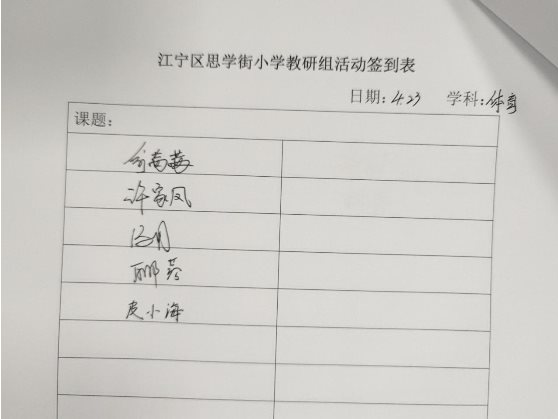 江宁区思学街小学教研组活动签到表
日期：4.23 学科：体育
课题：
许家凤
皮小海